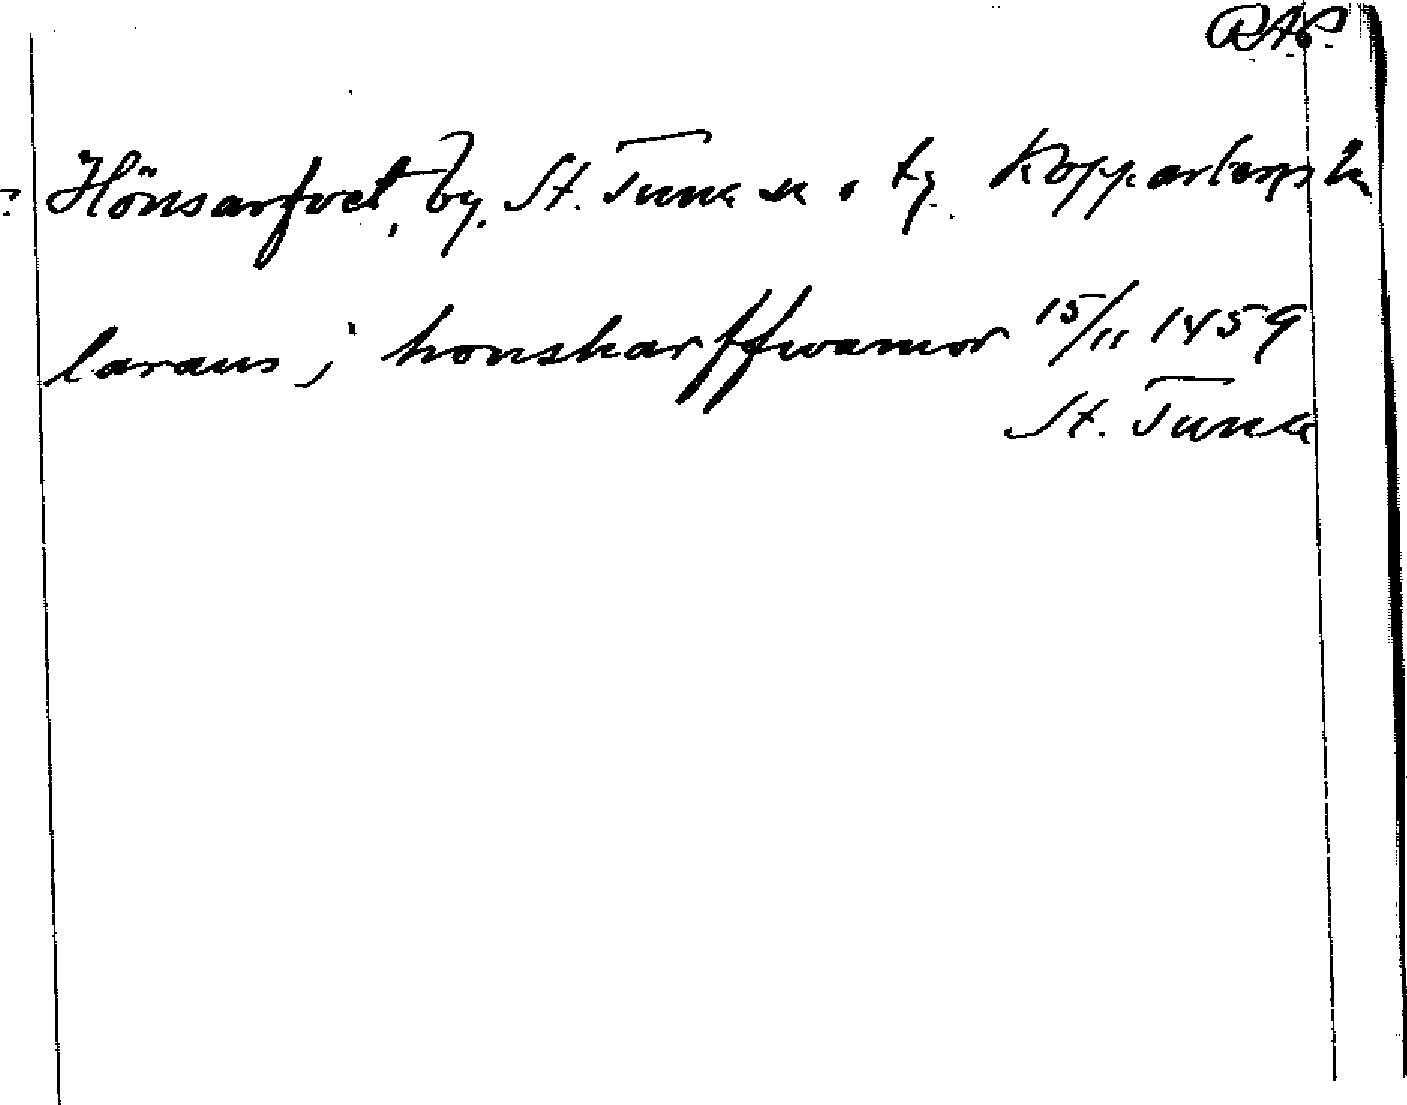 RAP.
Hönsarfvet, by, St. Tuna sn o. tg. Kopparbergs l.
laraus j honsharffwamor 15/11 1459
St. Tuna